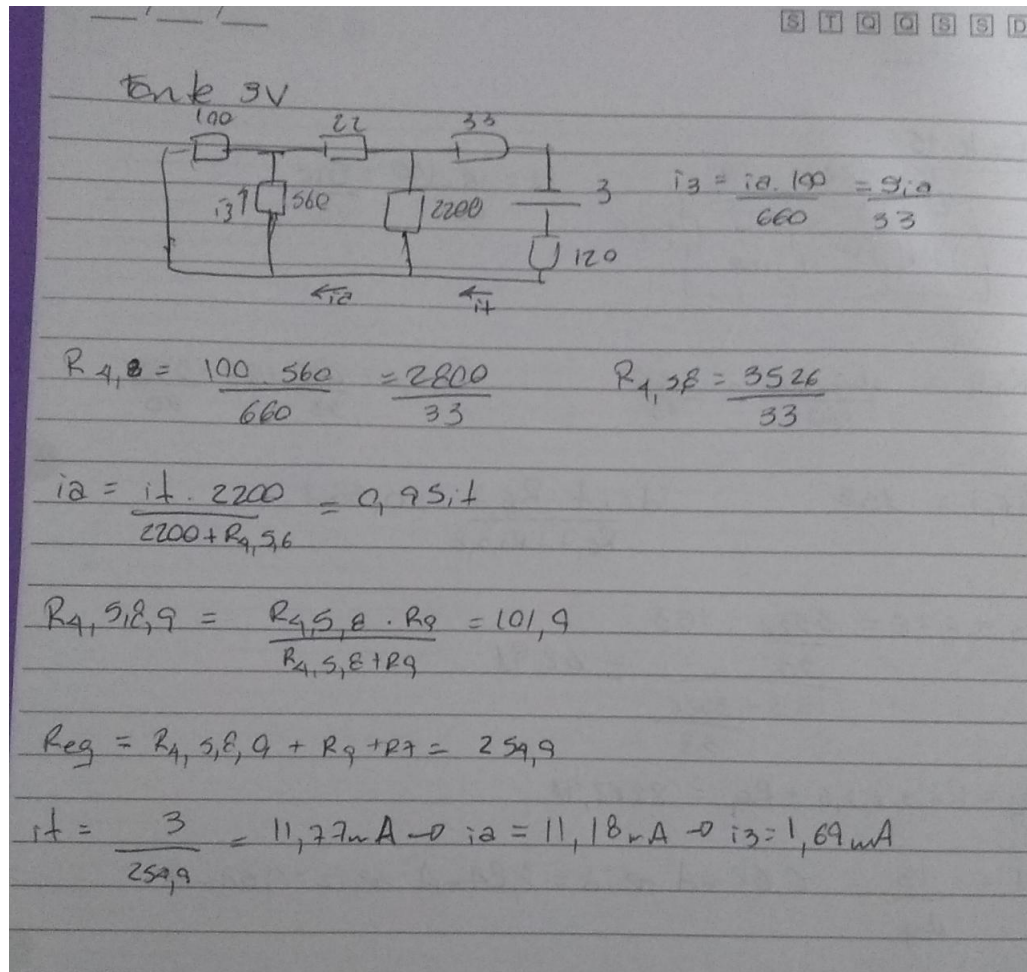 S T Q Q S S D
Fonte 3V
100 22 33
i3 560 2200 3
120
i3 = ia . 100 / 660 = 5ia / 33
ia it
R4,8 = 100 . 560 / 660 = 2800 / 33
R4,58 = 3526 / 33
ia = it . 2200 / 2200 + R4,5,6 = 0,95it
R4,5,8,9 = R4,5,8 . R9 / R4,5,8 + R9 = 101,9
Req = R4,5,8,9 + R9 + R7 = 254,9
it = 3 / 254,9 = 11,77mA → ia = 11,18mA → i3 = 1,69mA